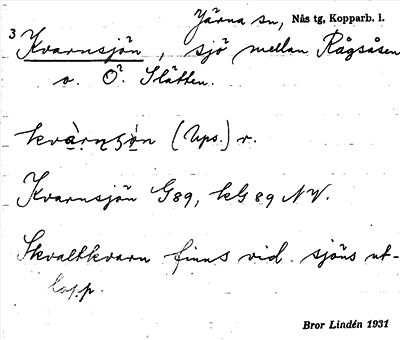 Järna sn, Nås tg, Kopparb. l.
3 Kvarnsjön, sjö mellan Rågsåsen
o. Ö. Slätten.
kvàrnsòn (Ups.) r.
Kvarnsjön G89, kG 89 NV.
Skvaltkvarn finns vid sjöns ut-
lopp.
Bror Lindén 1931